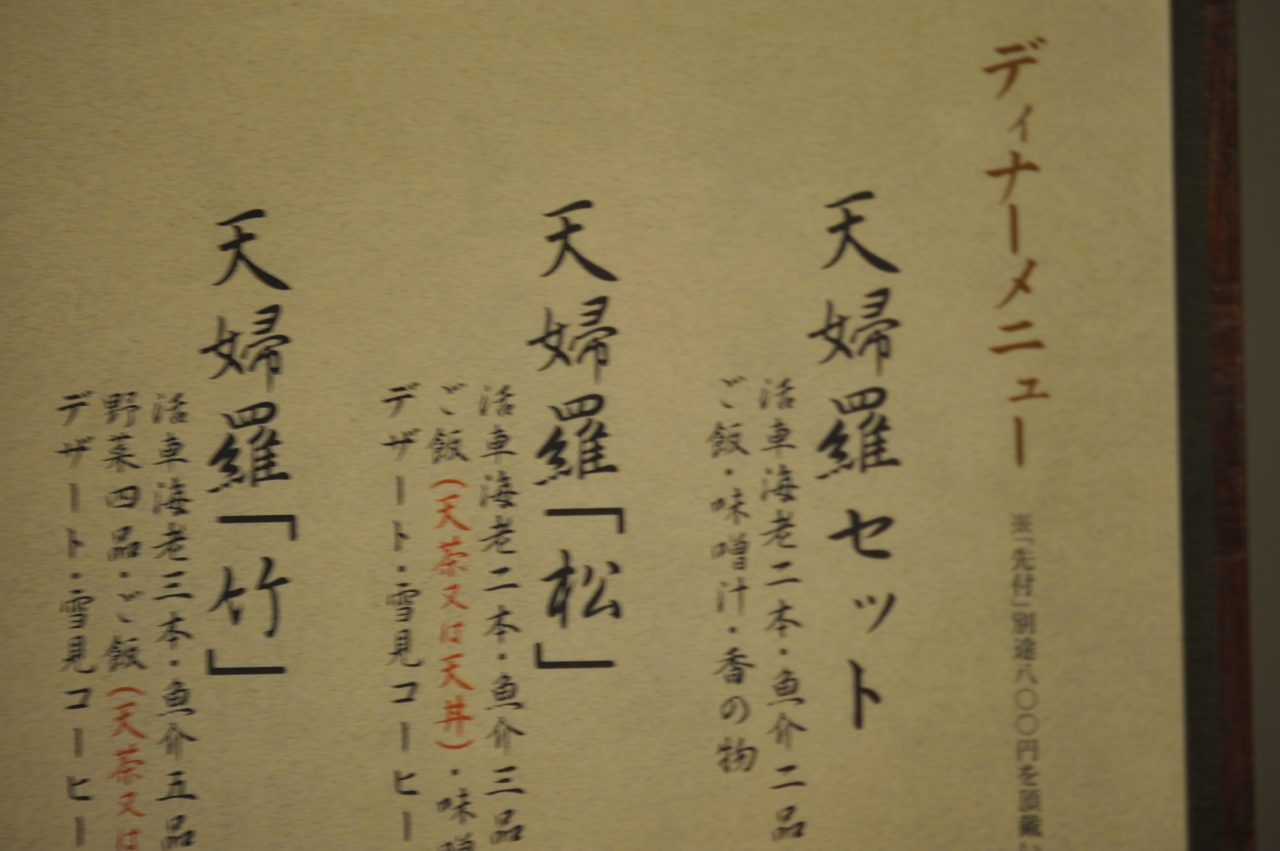 ディナーメニュー
※「先付」別途八〇〇円を頂戴い
天婦羅セット
活車海老二本・魚介二品
ご飯・味噌汁・香の物
天婦羅「松」
活車海老二本・魚介三品
ご飯(天茶又は天丼)・味噌
デザート・雪見コーヒー
天婦羅「竹」
活車海老三本・魚介五品
野菜四品・ご飯(天茶又は
デザート・雪見コーヒー